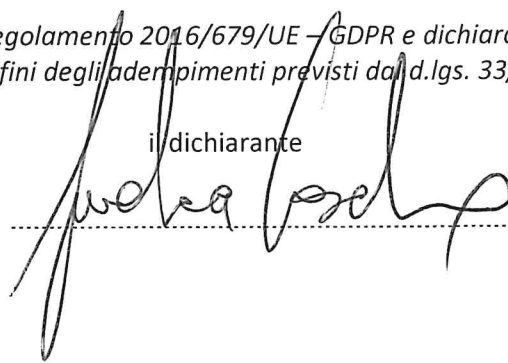 egolamento 2016/679/UE – GDPR e dichiara
fini degli adempimenti previsti dal d.lgs. 33/
il dichiarante